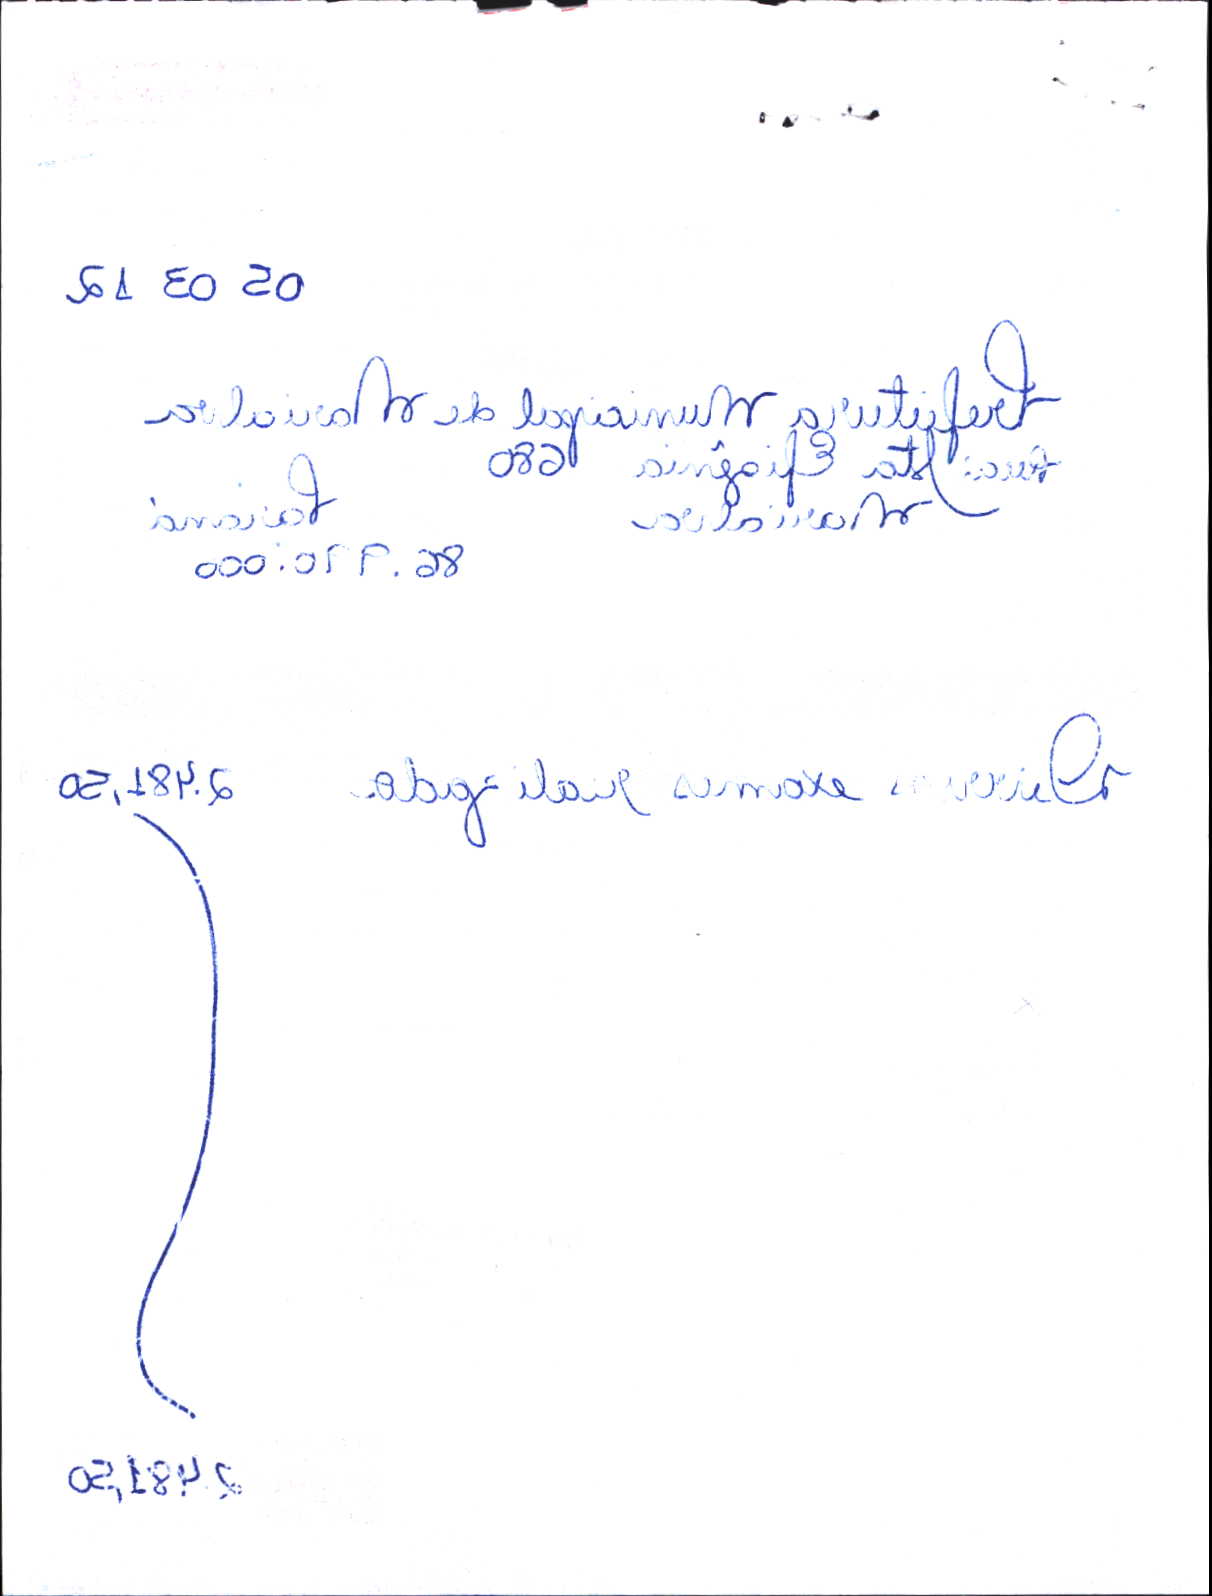 05 03 12
Prefeitura Municipal de Marialva
Rua: Sta Efigênia 680
Marialva Paraná
86.990.000
Diversos exames realizado. 2.481,50
2.481,50